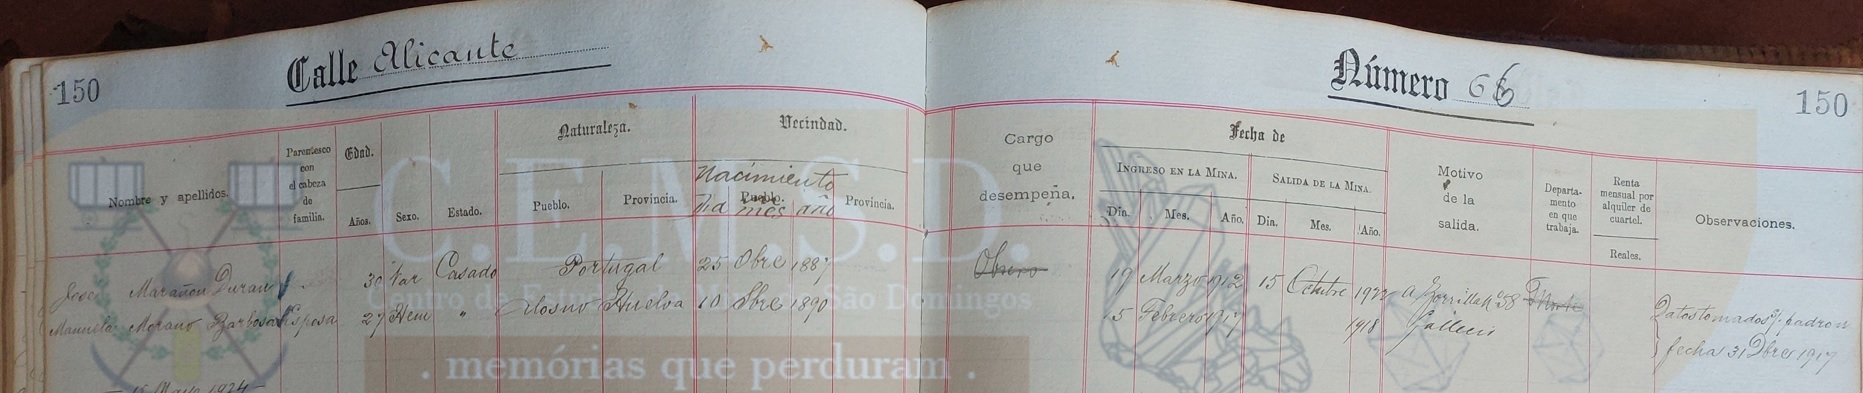 150 Calle Alicante Número 66 150
Nombre y apellidos.
Parentesco
con
el cabeza
de
familia.
Edad.
Años.
Sexo.
Estado.
Naturaleza.
Pueblo.
Provincia.
Vecindad.
Nacimiento
Pueblo.
Dia mes año
Provincia.
Cargo
que
desempeña.
Fecha de
Ingreso en la Mina.
Dia. Mes. Año.
Salida de la Mina.
Dia. Mes. Año.
Motivo
de la
salida.
Departa-
mento
en que
trabaja.
Renta
mensual por
alquiler de
cuartel.
Reales.
Observaciones.
Jose Marañon Duran 30 Var Casado Portugal 25 Obre 1887 Obrero 19 Marzo 1912 15 Octubre 1922 a Zorrilla nº 58
Manuela Morano Barbosa Esposa 27 Hem " Alosno Huelva 10 1890 5 Febrero 1917 1918
Datos tomados s/. padron
fecha 31 Dbre 1917
15 Mayo 1924
C.E.M.S.D.
Centro de Estudos da Mina de São Domingos
. memórias que perduram .